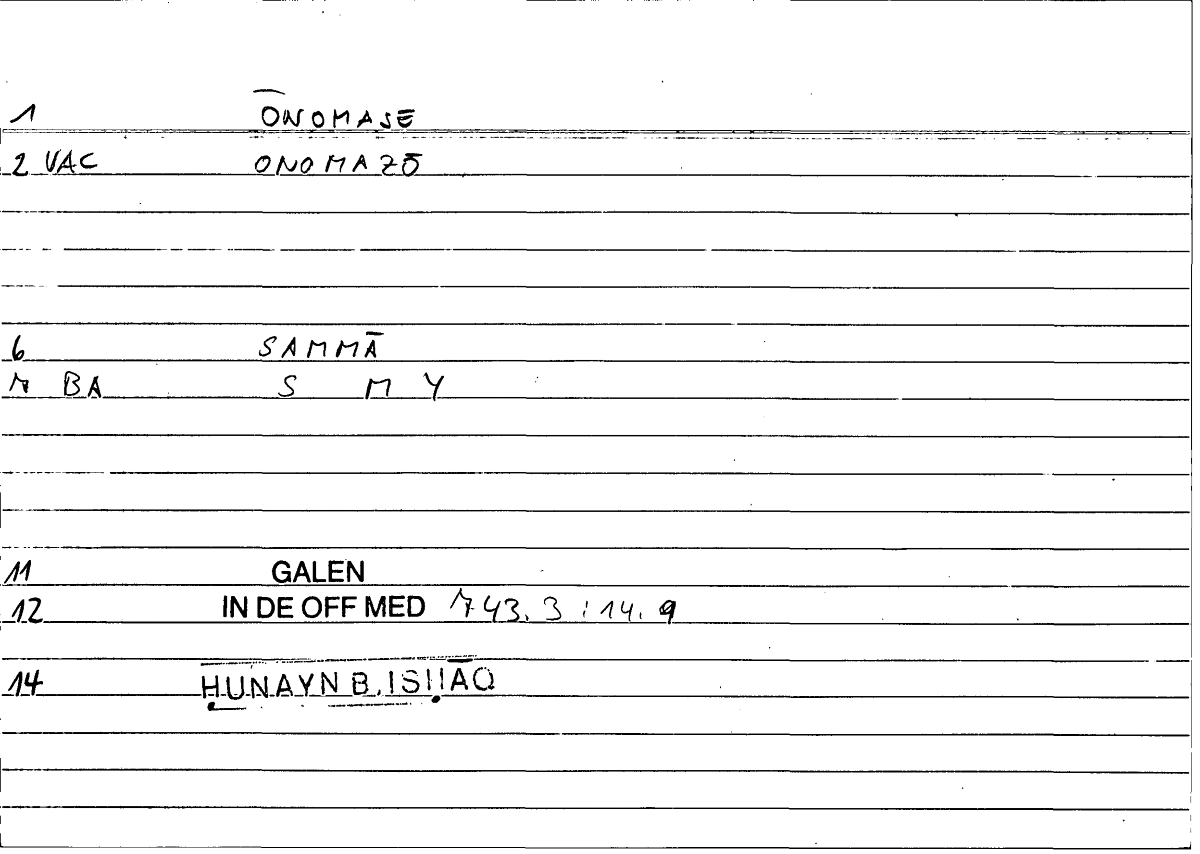 1 ŌNOMASE
2 VAC ONOMAZŌ
6 SAMMĀ
7 BA S M Y
11 GALEN
12 IN DE OFF MED 743.3 : 14.9
14 ḤUNAYN B. ISḤĀQ